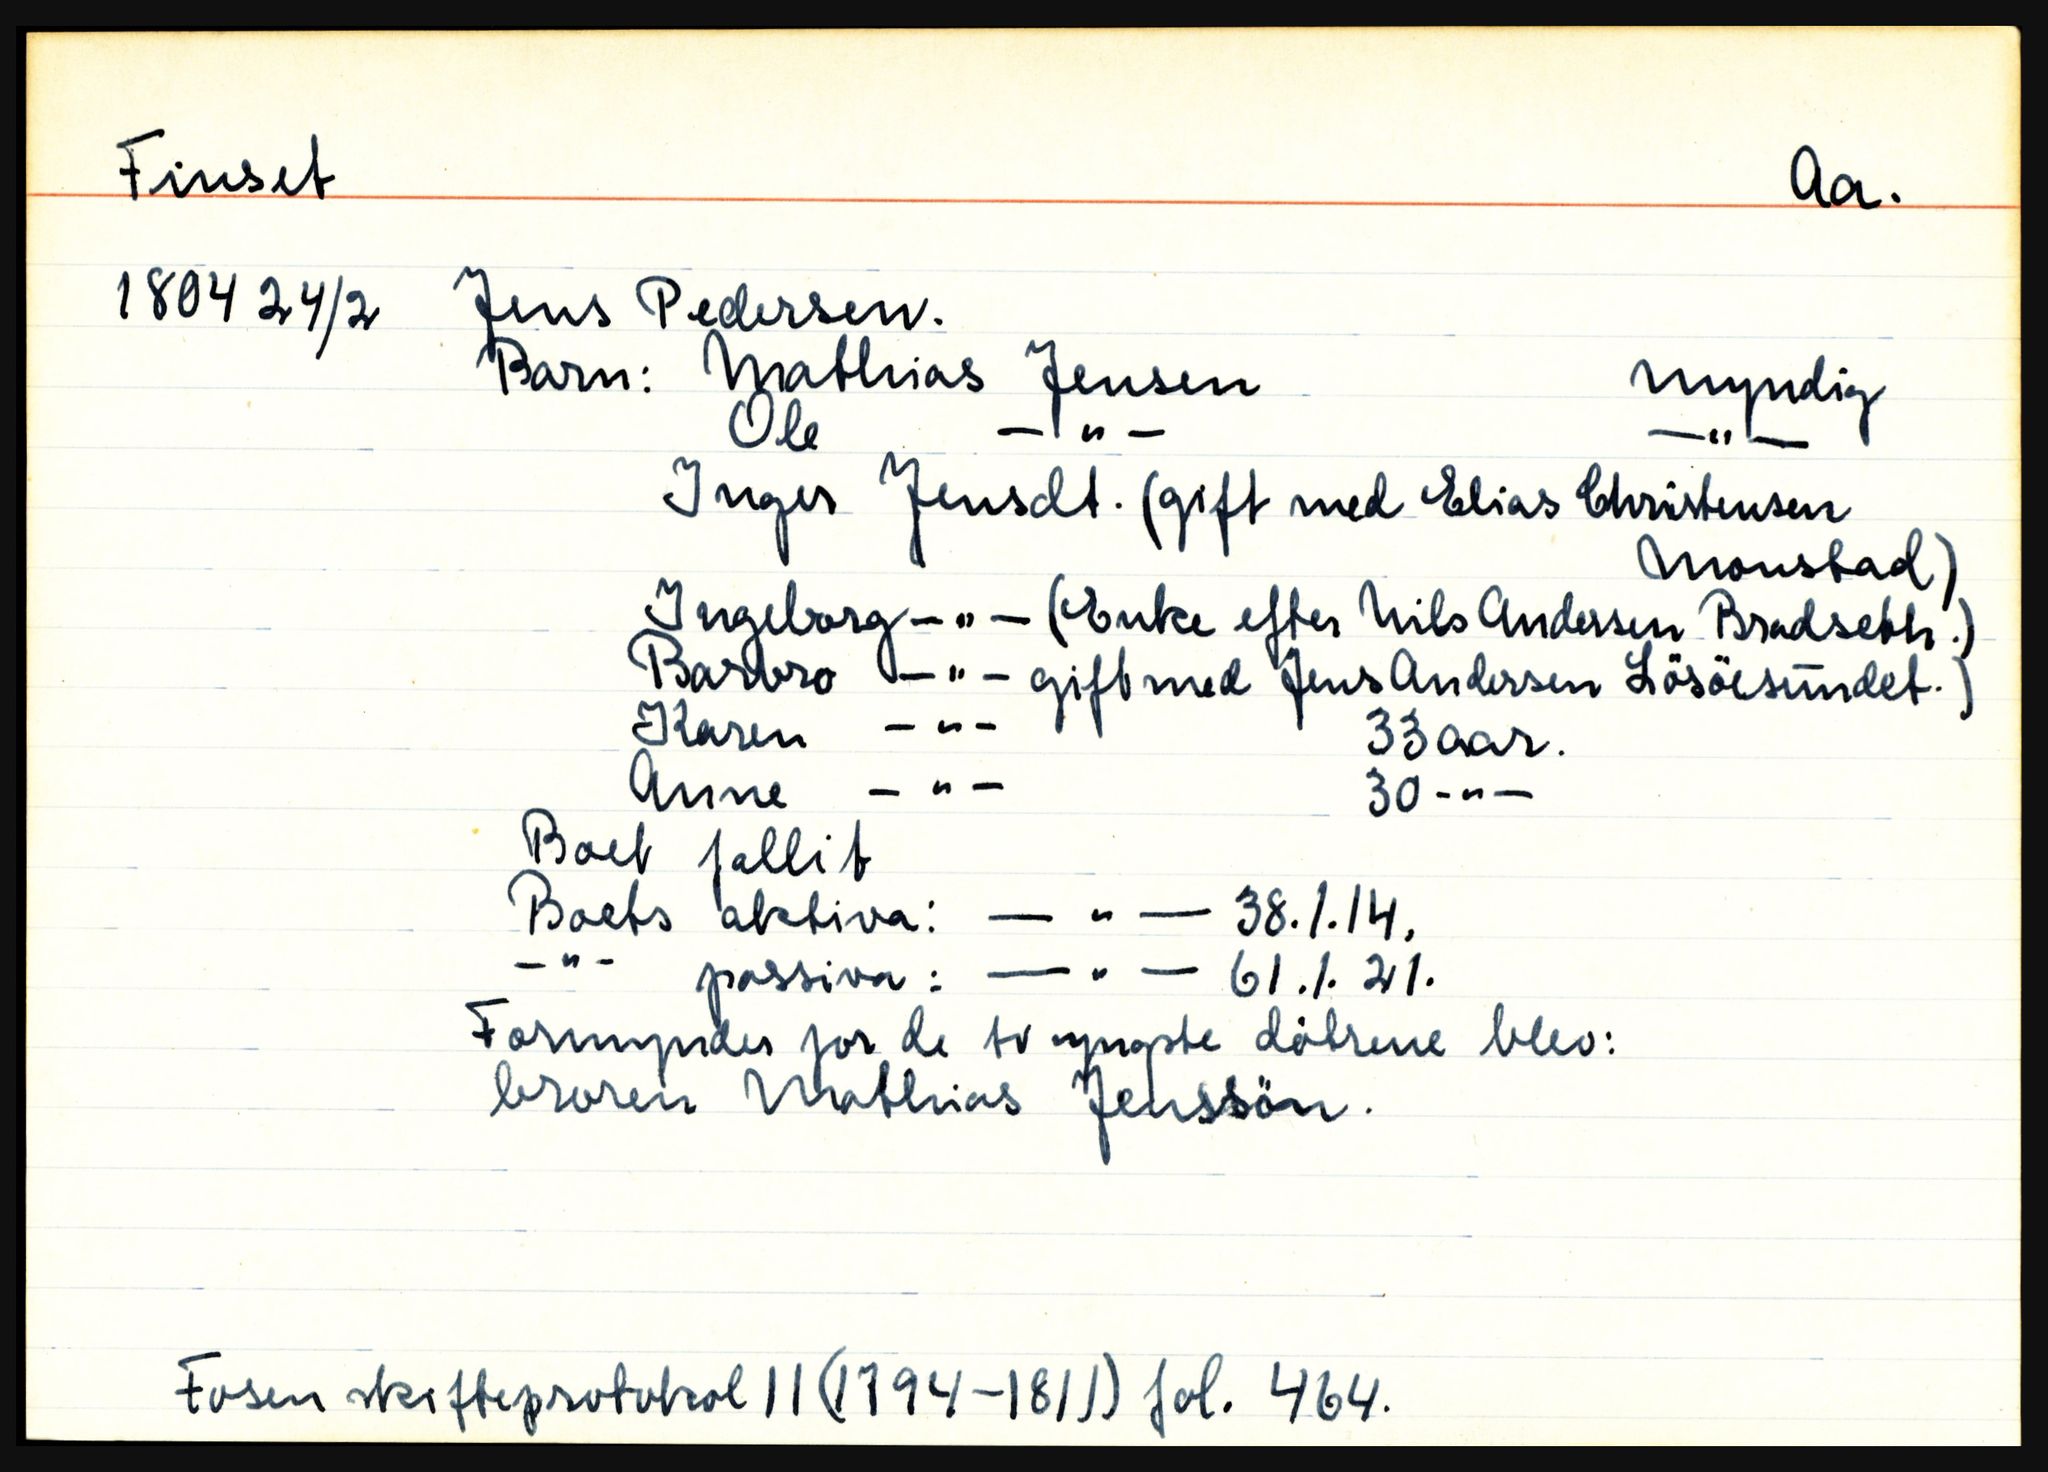 Finset Aa.
1804 24/2 Jens Pedersen.
Barn: Mathias Jensen myndig
Ole — " — — " —
Inger Jensdt. (gift med Elias Christensen
Monstad)
Ingeborg — " — (Enke efter Nils Andersen Bradseth.)
Barbro — " — gift med Jens Andersen Lösöesundet.)
Karen — " — 33 aar.
Anne — " — 30 — " —
Boet fallit
Boets aktiva: — " — 38.1.14.
— " — passiva: — " — 61.1.21.
Formynder for de to yngste döttrene blev:
broren Mathias Jenssön.
Fosen skifteprotokol 11 (1794-1811) fol. 464.